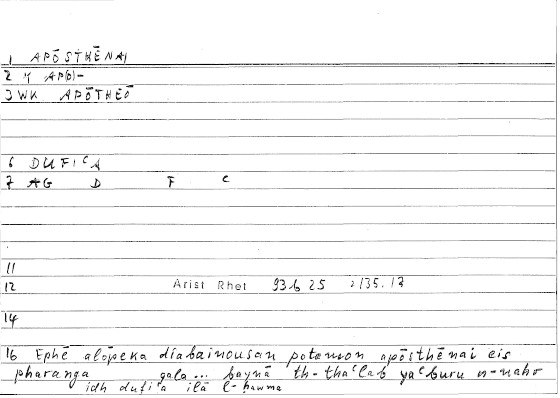 1 APŌSTHĒNAI
2 Y AP(O)-
3 WK APŌTHEŌ
6 DUFIᶜA
7 AG D F ᶜ
11
12 Arist Rhet 93b 25 2135.13
14
16 Ephē alōpeka diabainousan potamon apōsthēnai eis
pharanga qala... baynā th-thaᶜlab yaᶜburu n-nahr
idh dufiᶜa ilā l-hawma